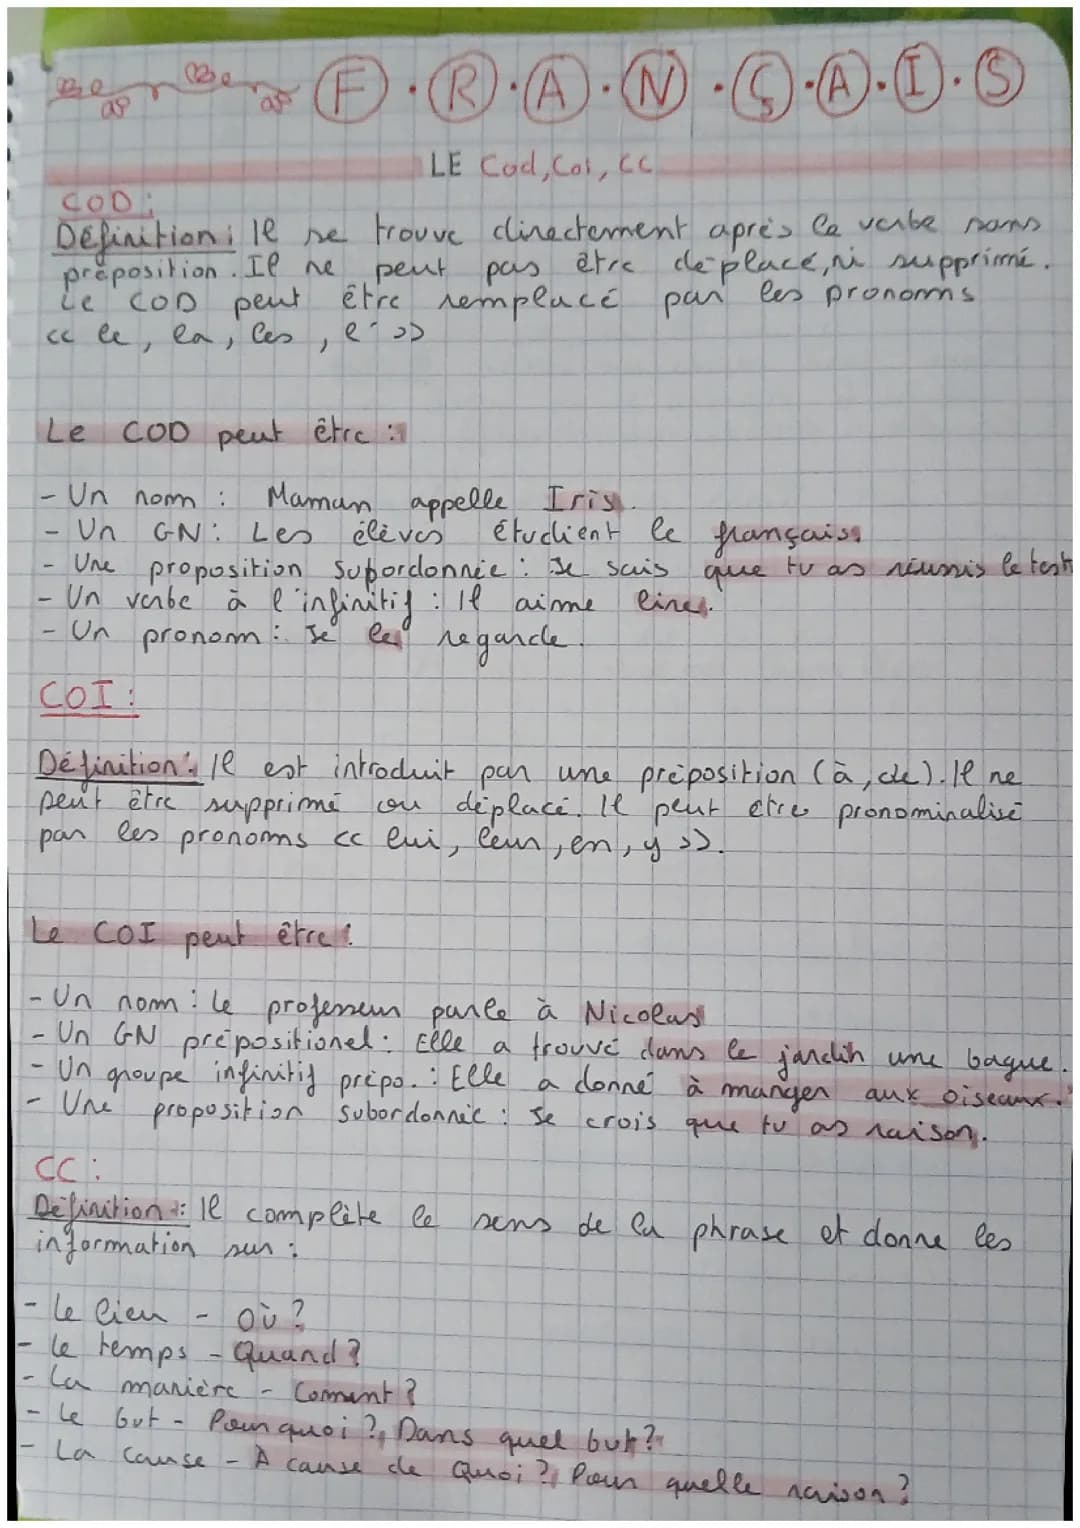 F.R.A.N.Ç.A.I.S
LE Cod, Coi, CC
COD :
Définition : Il se trouve directement après le verbe sans
préposition. Il ne peut pas être déplacé, ni supprimé.
Le COD peut être remplacé par les pronoms
<< le, la, les, l' >>
Le COD peut être :
- Un nom : Maman appelle Iris.
- Un GN : Les élèves étudient le français.
- Une proposition subordonnée : Je sais que tu as réussis le test
- Un verbe à l'infinitif : Il aime lire.
- Un pronom : Je les regarde.
COI :
Définition : Il est introduit par une préposition (à, de). Il ne
peut être supprimé ou déplacé. Il peut etre pronominalisé
par les pronoms << lui, leur, en, y >>.
Le COI peut être :
- Un nom : Le professeur parle à Nicolas
- Un GN prépositionel : Elle a trouvé dans le jardin une bague.
- Un groupe infinitif prépo. : Elle a donné à manger aux oiseaux.
- Une proposition subordonnée : Je crois que tu as raison.
CC :
Définition : Il complète le sens de la phrase et donne les
information sur :
- Le lieu - Où ?
- Le temps - Quand ?
- La manière - Comment ?
- Le but - Pourquoi ?, Dans quel but ?
- La cause - À cause de Quoi ?, Pour quelle raison ?